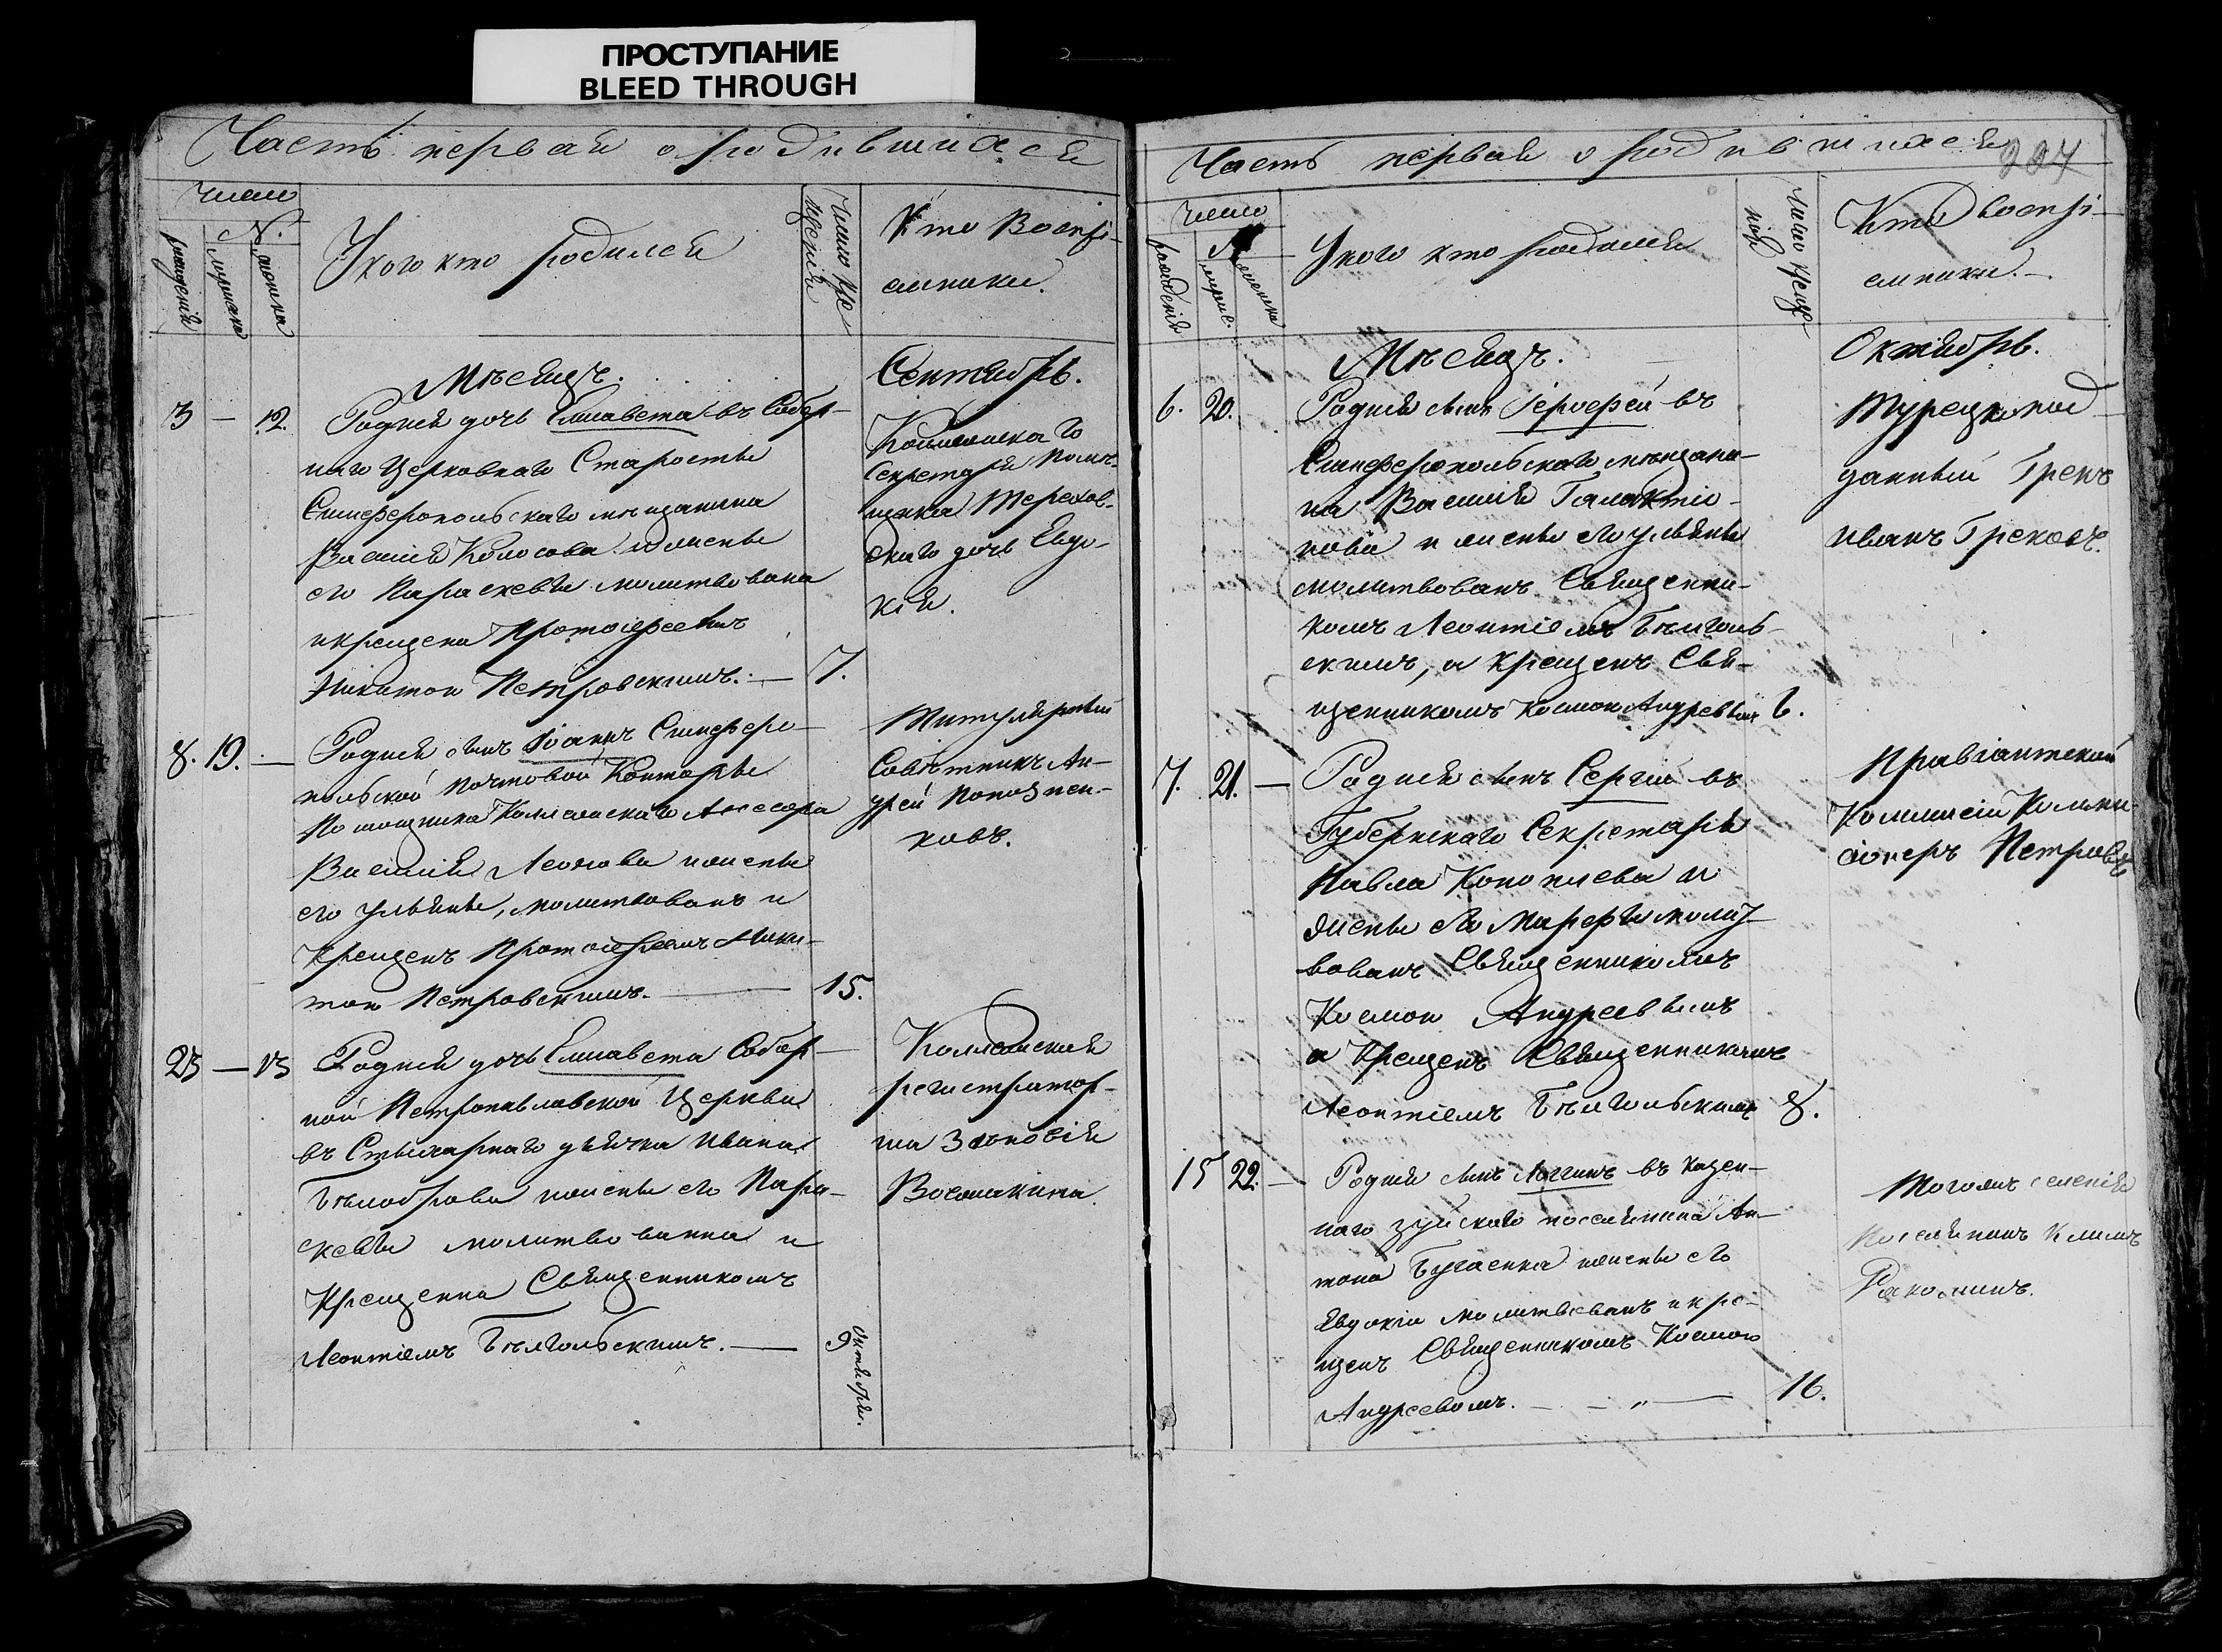 ПРОСТУПАНИЕ
BLEED THROUGH
Часть первая о родившихся
Число
№
рождения
мужеска
женска
У кого кто родился
Число кре
щенія
Кто Воспрі-
емники.
Мѣсяцъ.
Сентябрь.
3 — 12.
Родися дочь Елисавета въ Собор-
наго Церковнаго Старосты
Симферопольскаго мѣщанина
Василія Колосова и жены
его Параскевы молитвована
и крещена Протоіереемъ
Никитою Петровскимъ. — 7.
Коллежскаго
Секретаря Помѣ-
щика Терехов-
скаго дочь Евдо-
кія.
8. 19. —
Родися сынъ Іоаннъ Симферо-
польской почтовой Конторы
Помощника Коллежскаго Ассесора
Василія Леонова и жены
его Ульяны, молитвованъ и
Крещенъ Протоіереемъ Ники-
тою Петровскимъ. — 15.
Титулярный
Совѣтникъ Ан-
дрей
ковъ.
23 — 13
Родися дочь Елисавета Собор-
ной Петропавловской Церкви
въ Стихарнаго дьячка Ивана
Бѣлоброва и жены его Пара-
скевы молитвованна и
Крещенна Священникомъ
Леонтіемъ Бѣлгольскимъ. — 9 октября.
Коллежская
регистратор-
ша Зиновія
Часть первая о родившихся
207
Число
№
рожденія
мужес.
женска
У кого кто родился
Число Креще-
нія
Кто воспрі-
емники. —
Мѣсяцъ.
Октябрь.
6. 20.
Родися сынъ Іероѳей въ
Симферопольскаго мѣщани-
на Василія Галактіо-
нова и жены его Ульяны
молитвованъ Священни-
комъ Леонтіемъ Бѣлголь-
скимъ, а крещенъ Свя-
щенникомъ Космою Андреевымъ 6.
Турецкоподъ-
данный Грекъ
Иванъ Грековъ.
7. 21. —
Родися сынъ Сергій въ
Губернскаго Секретаря
Павла Коноплева и
жены его Марѳы молит
вованъ Священникомъ
Космою Андреевымъ
а Крещенъ Священникомъ
Леонтіемъ Бѣлгольскимъ 8.
Провіантской
Коммисіи Комми-
сіонеръ Петровъ
15 22. —
Родися сынъ Логгинъ въ казен-
наго зуйскаго поселянина Ан-
тона Бугаенка и жены его
Евдокіи молитвованъ и кре-
щенъ Священникомъ Космою
Андреевомъ. — — „ — 16.
Тогожъ селенія
Поселянинъ Климъ